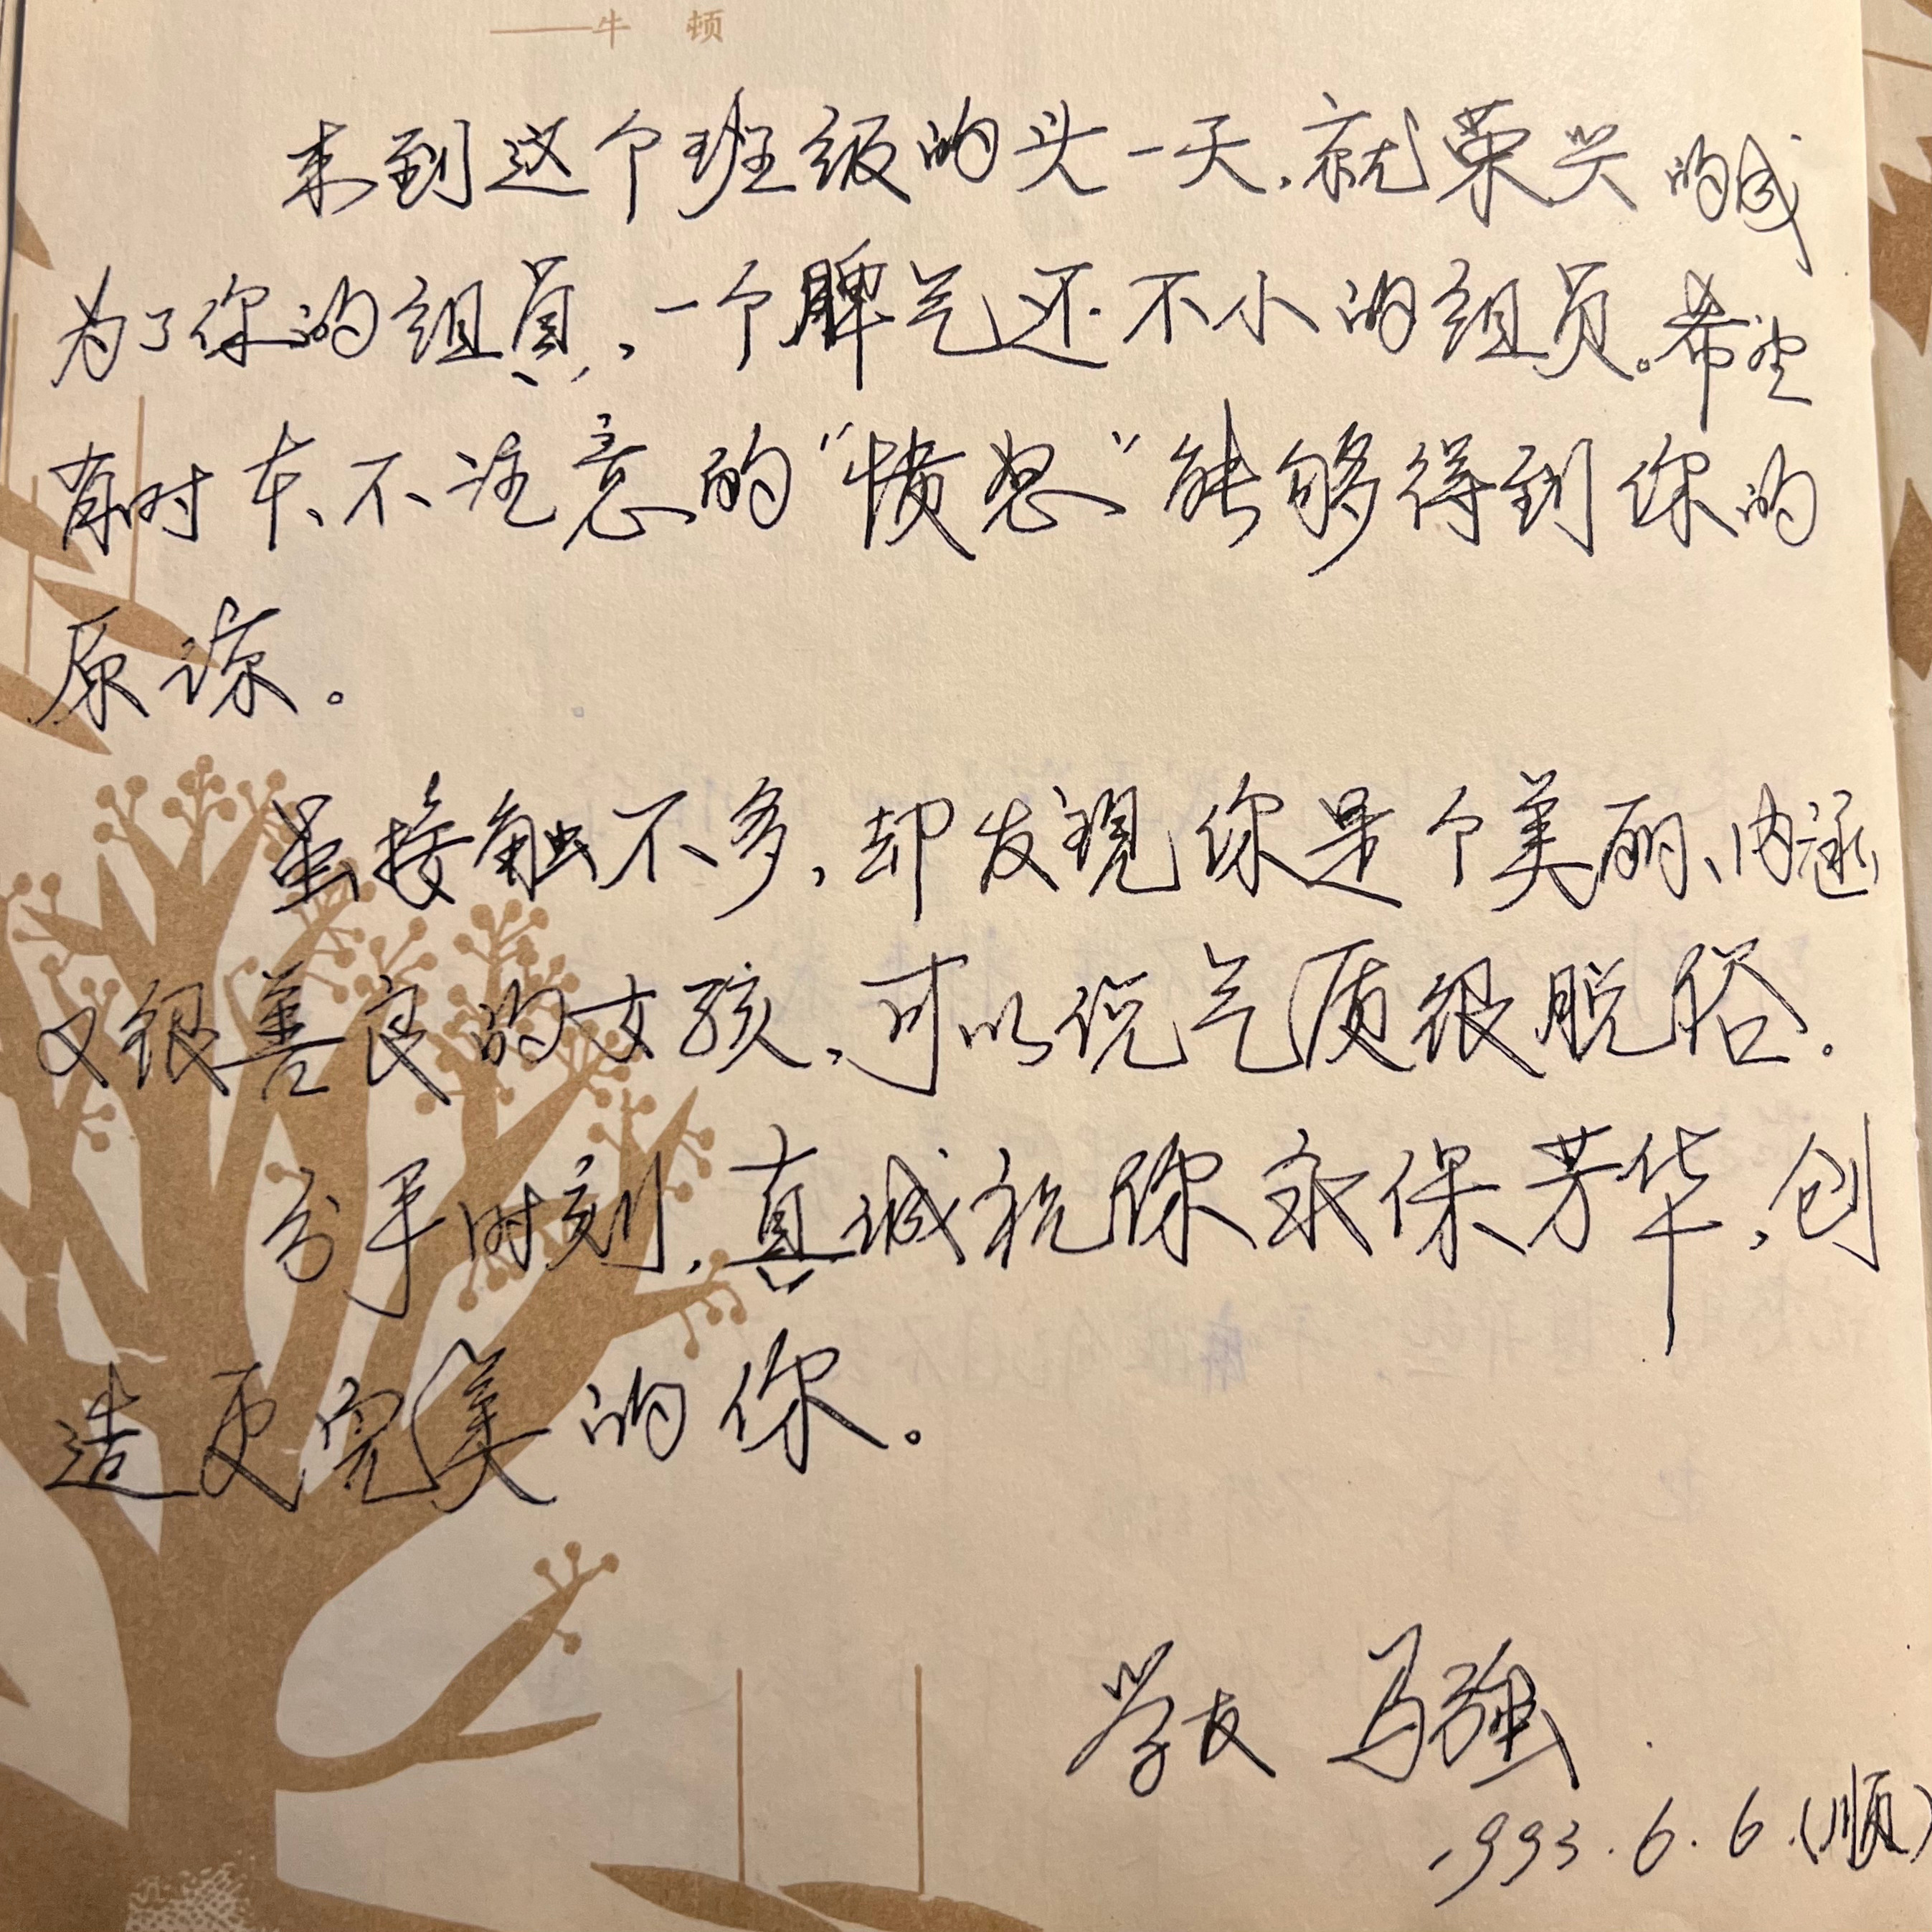 ——牛 顿
来到这个班级的头一天,就荣兴的成
为了你的组员,一个脾气还不小的组员。希望
有时本人不注意的“愤怒”能够得到你的
原谅。
虽接触不多,却发现你是个美丽、内涵
又很善良的女孩,可以说气质很脱俗.
分手时刻,真诚祝你永保芳华,创
造更完美的你。
学友 马强
1993.6.6.(顺)